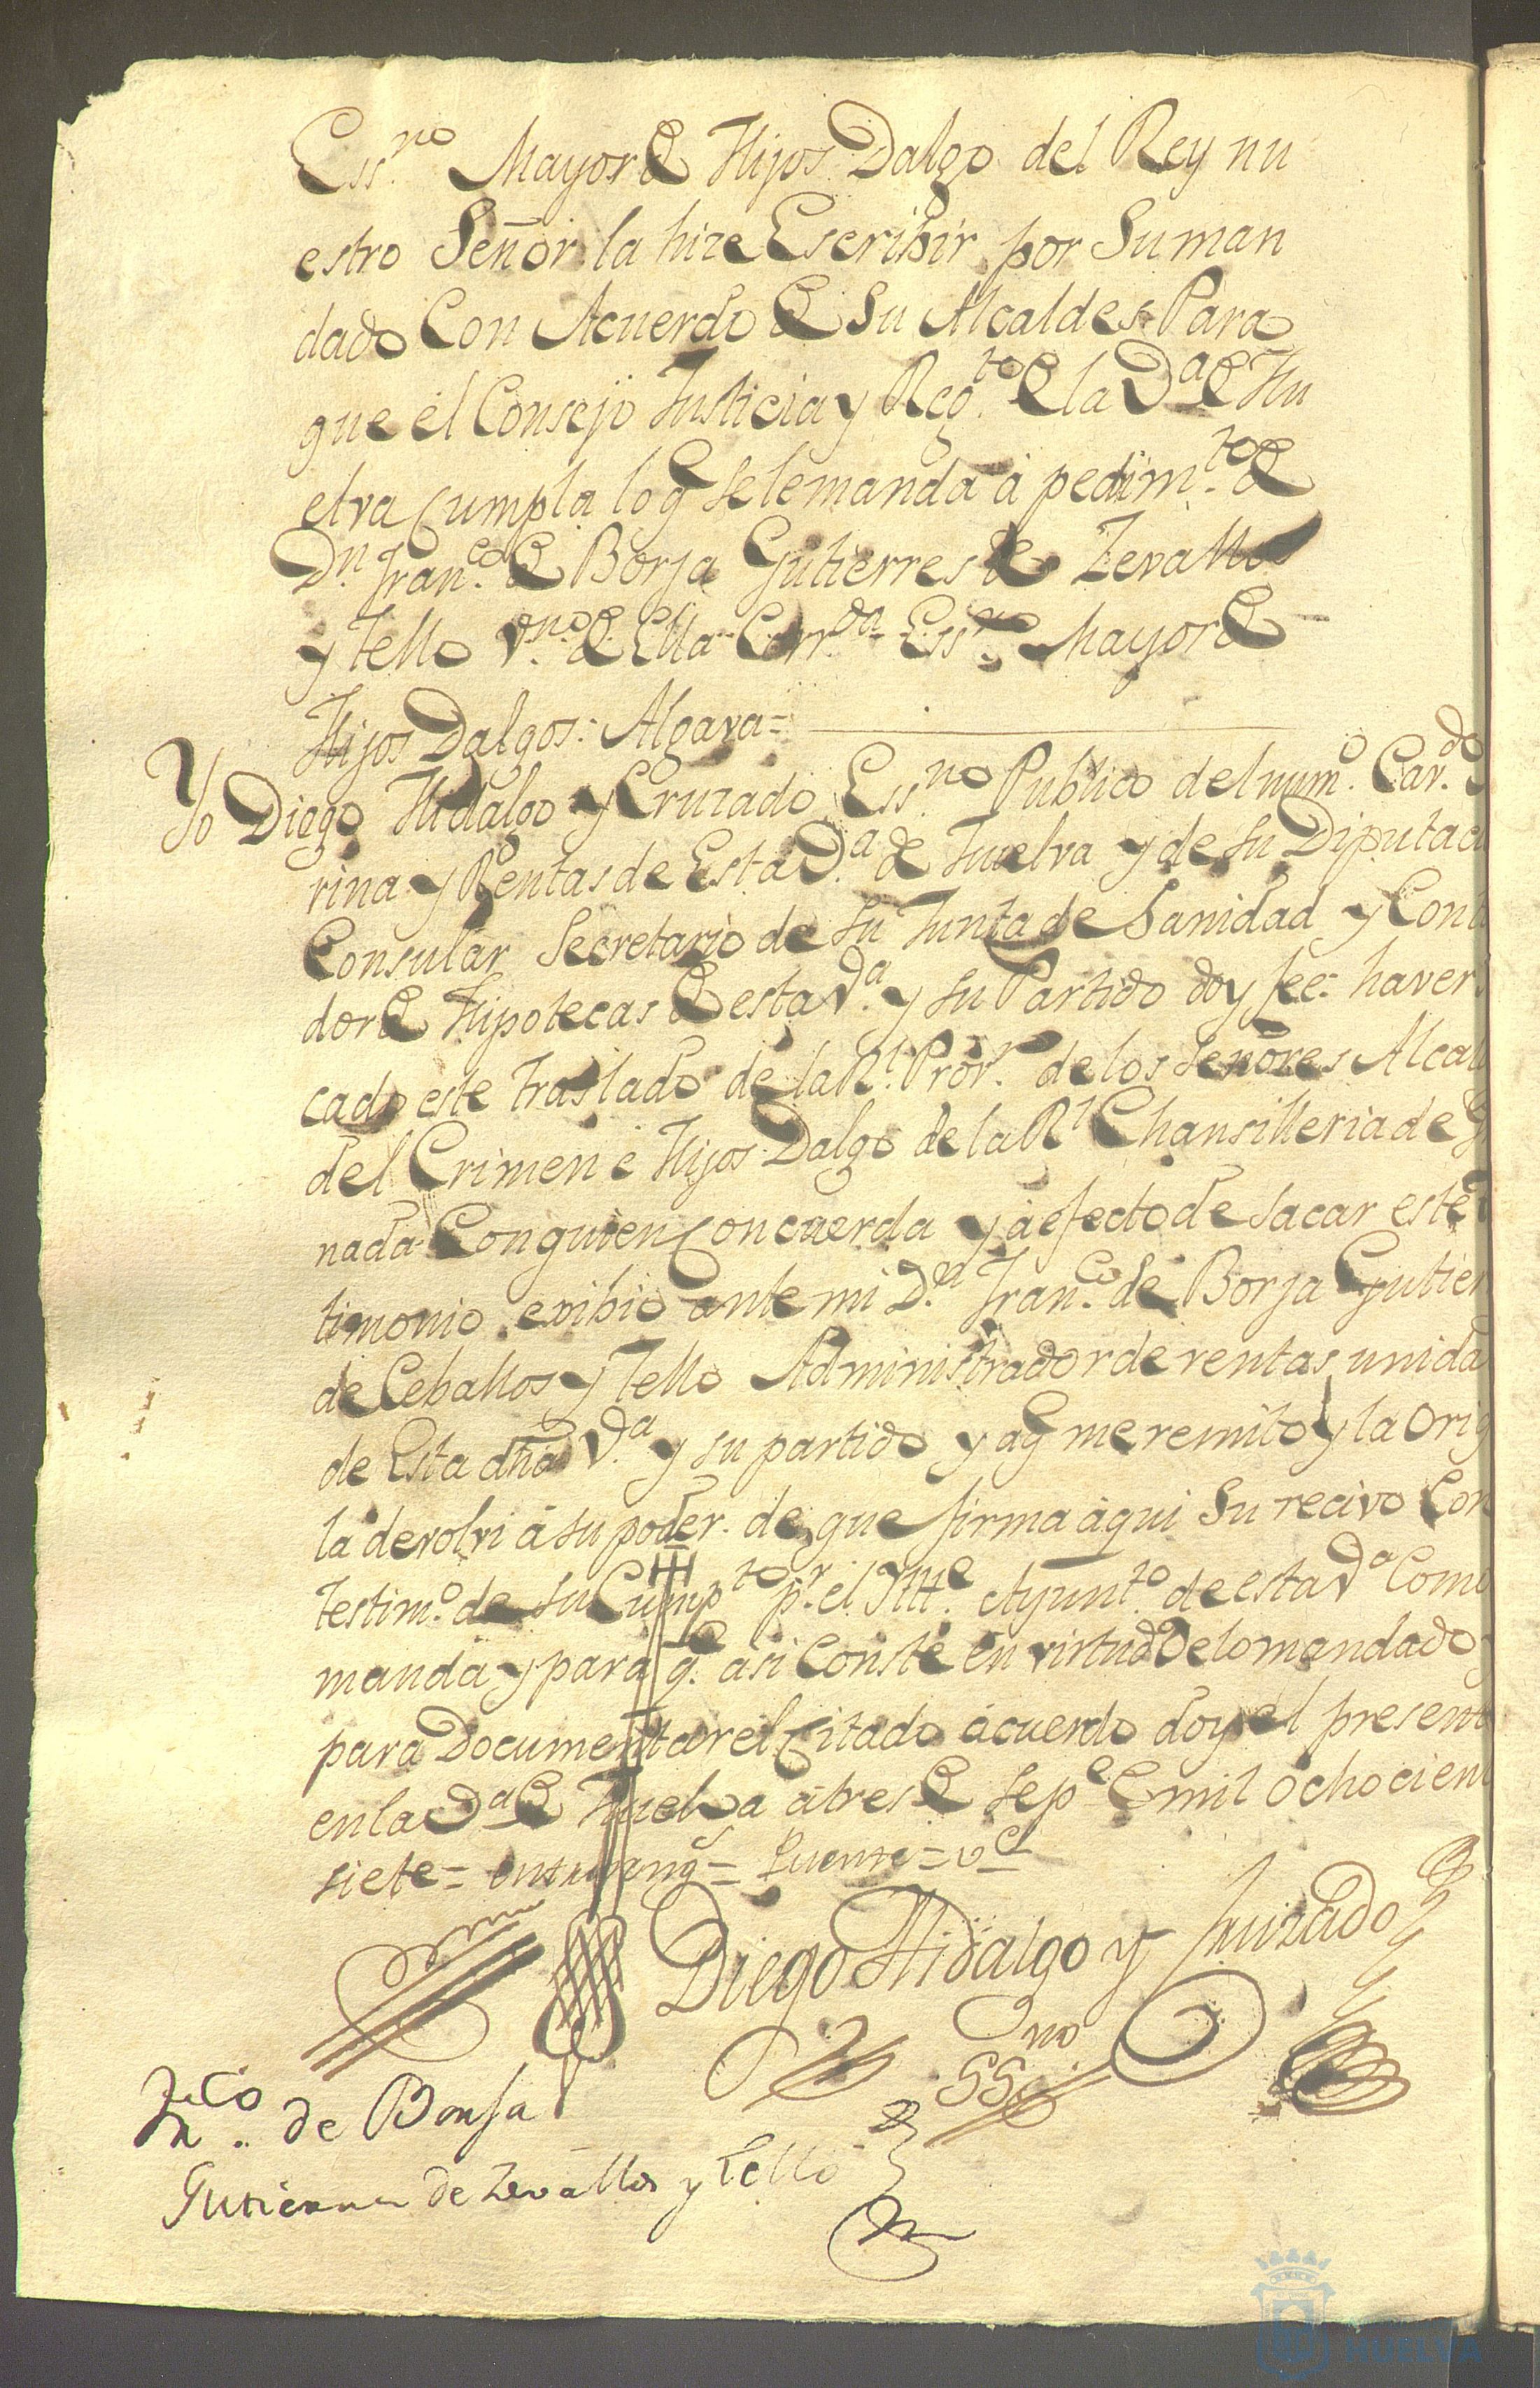 Ess.no Mayor de Hijos Dalgo del Rey nu
estro Señor la hize Escribir por Su man
dado Con Acuerdo de Su Alcaldes Para
que el Consejo Justicia y Reg.to de la Va de Hu
elva Cumpla lo q Se le manda â pedim.to de
Dn. Fran.co de Borja Gutierres de Zevallos
y Tello V.no de Ella Corr.da Ess.no Mayor de
Hijos Dalgos: Algava=
Yo Diego Hidalgo y Cruzado Ess.no Publico del num.o Car.do
rina y Rentas de Esta V.a de Huelva y de su Diputaci
Consular Secretario de su Junta de Sanidad y Cont
dor de Hipotecas de esta V.a y su Partido doy fee: haver
cado este traslado de la Rl. Pror.n de los Señores Alcal
del Crimen e Hijos Dalgo de la Rl Chansilleria de Gr
nada Con quien Concuerda y â efecto de sacar este
timonio exibio ante mi D.n Fran.co de Borja Gutier
de Ceballos y Tello Administrador de rentas unida
de Esta dha V.a y su partido y a q me remito y la Orig
la devolvi â su poder. de que firma aqui Su recivo Con
testim.o de su Cump.to p.r el Ille. Ayunt.to de esta Va Como
manda y para q.e asi Conste en virtud de lo mandado y
para Documentar el Citado acuerdo doy el present
en la Va de Huelva â tres de Sep.e de mil ochocien
siete =
Diego Hidalgo y Cruzado
SS.no
Fr.co de Borja
Gutierres de Zevallos y Tello
HUELVA